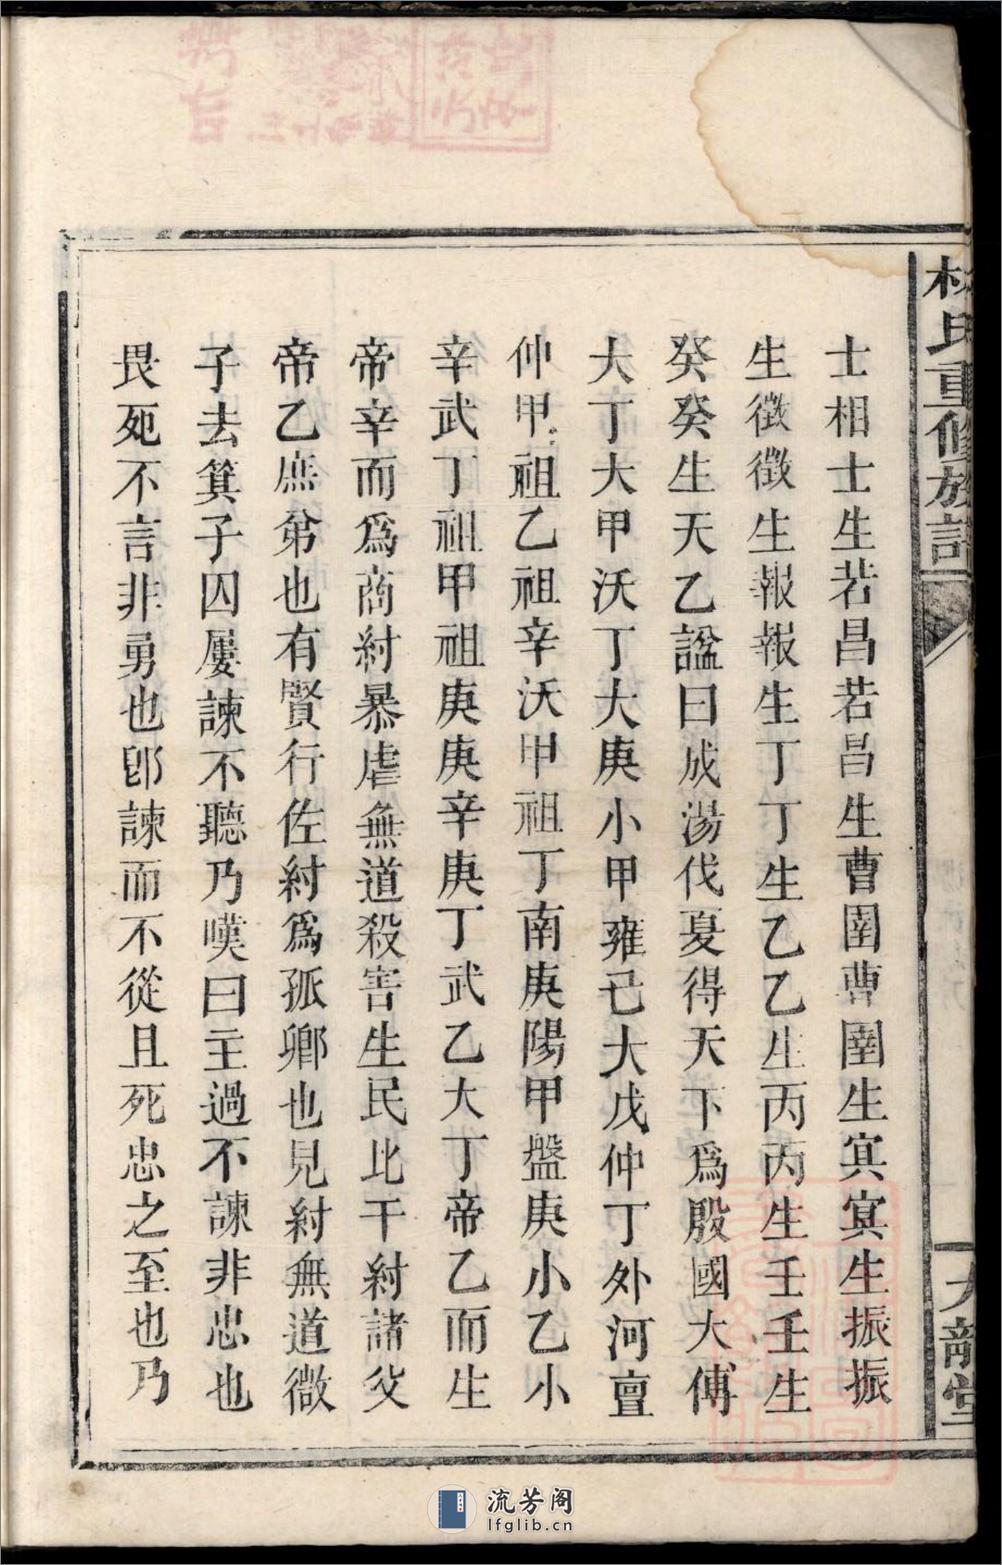 林氏重修族譜
士相士生若昌若昌生曹圉曹圉生冥冥生振振
生徵徵生報報生丁丁生乙乙生丙丙生壬壬生
癸癸生天乙諡曰成湯伐夏得天下爲殷國大傅
大丁大甲沃丁大庚小甲雍己大戊仲丁外河亶
仲甲祖乙祖辛沃甲祖丁南庚陽甲盤庚小乙小
辛武丁祖甲祖庚庚辛庚丁武乙大丁帝乙而生
帝辛而爲商紂暴虐無道殺害生民比干紂諸父
帝乙庶弟也有賢行佐紂爲孤卿也見紂無道微
子去箕子囚屢諫不聽乃嘆曰主過不諫非忠也
畏死不言非勇也卽諫而不從且死忠之至也乃
流芳阁
lfglib.cn